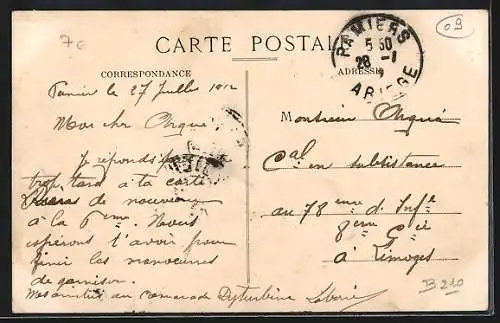 76
09
CARTE POSTALE
CORRESPONDANCE
ADRESSE
PAMIERS
5 30
28 -
ARIEGE
le 27 Juillet 1912
Mon cher
Je réponds
trop tard à ta carte
de nouveau
à la 6eme. Nous
espérons l'avoir pour
finir les manoeuvres
de garnison.
Mes amitiés au camarade
Monsieur
Cal en subsistance
au 78 eme d. Infie
8eme Cie
à Limoges
B 210